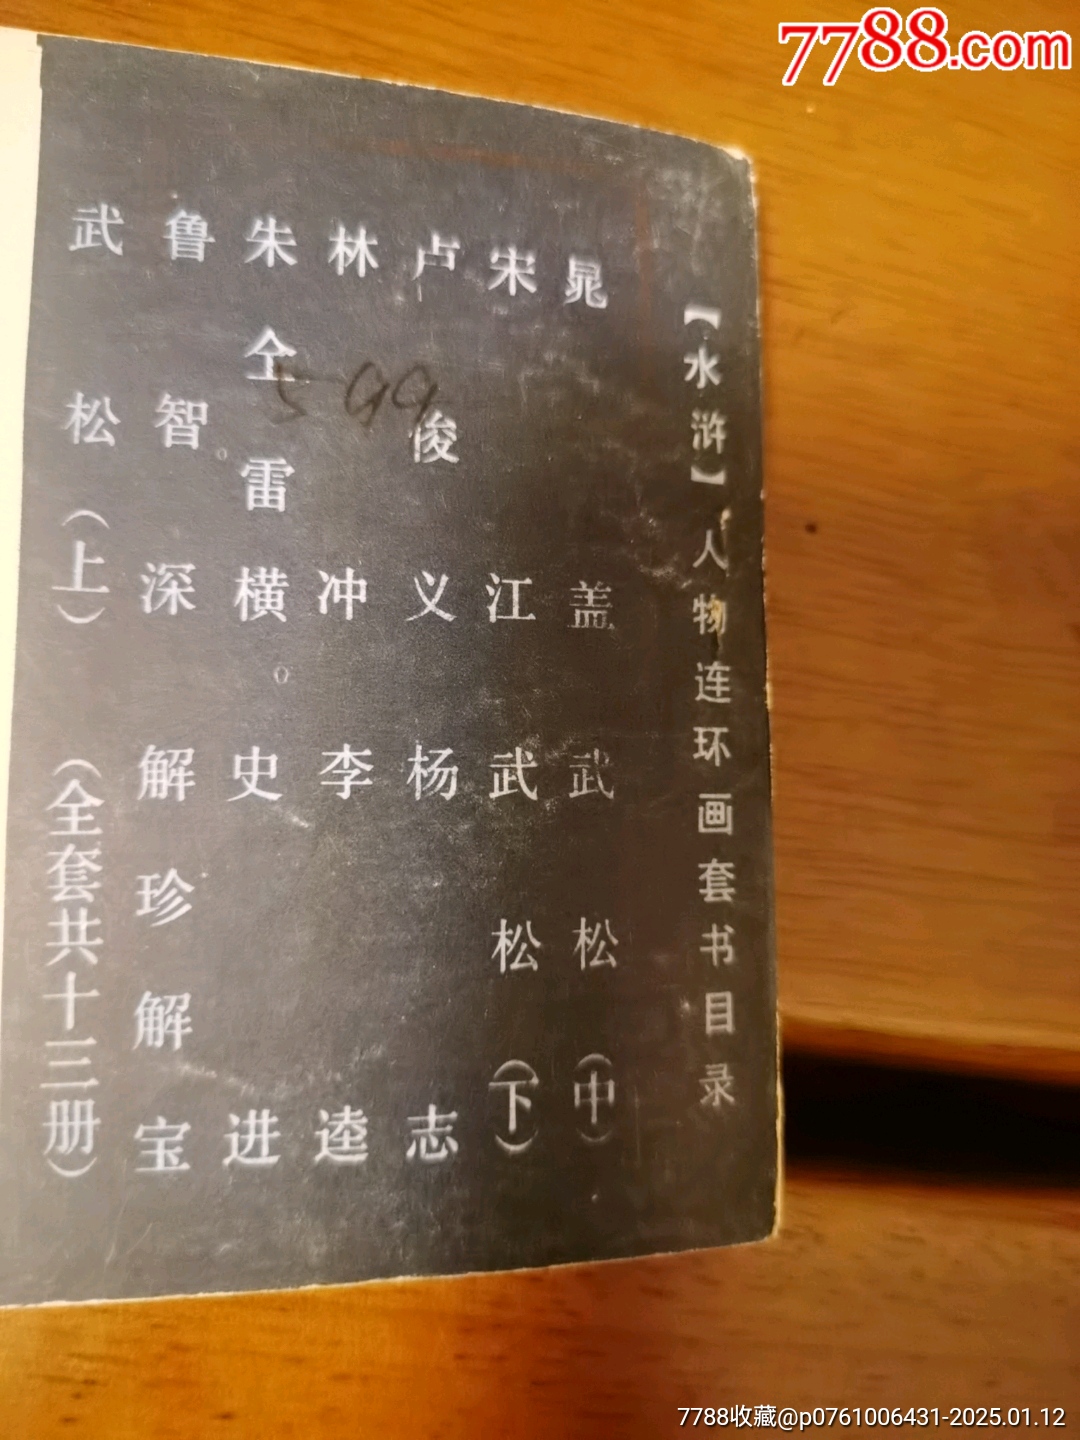 7788.com
【水浒】人物连环画套书目录
晁盖 武松（中）
宋江 武松（下）
卢俊义 杨志
林冲 李逵
朱仝雷横 史进
鲁智深 解珍解宝
武松（上） （全套共十三册）
599
7788收藏@p0761006431-2025.01.12